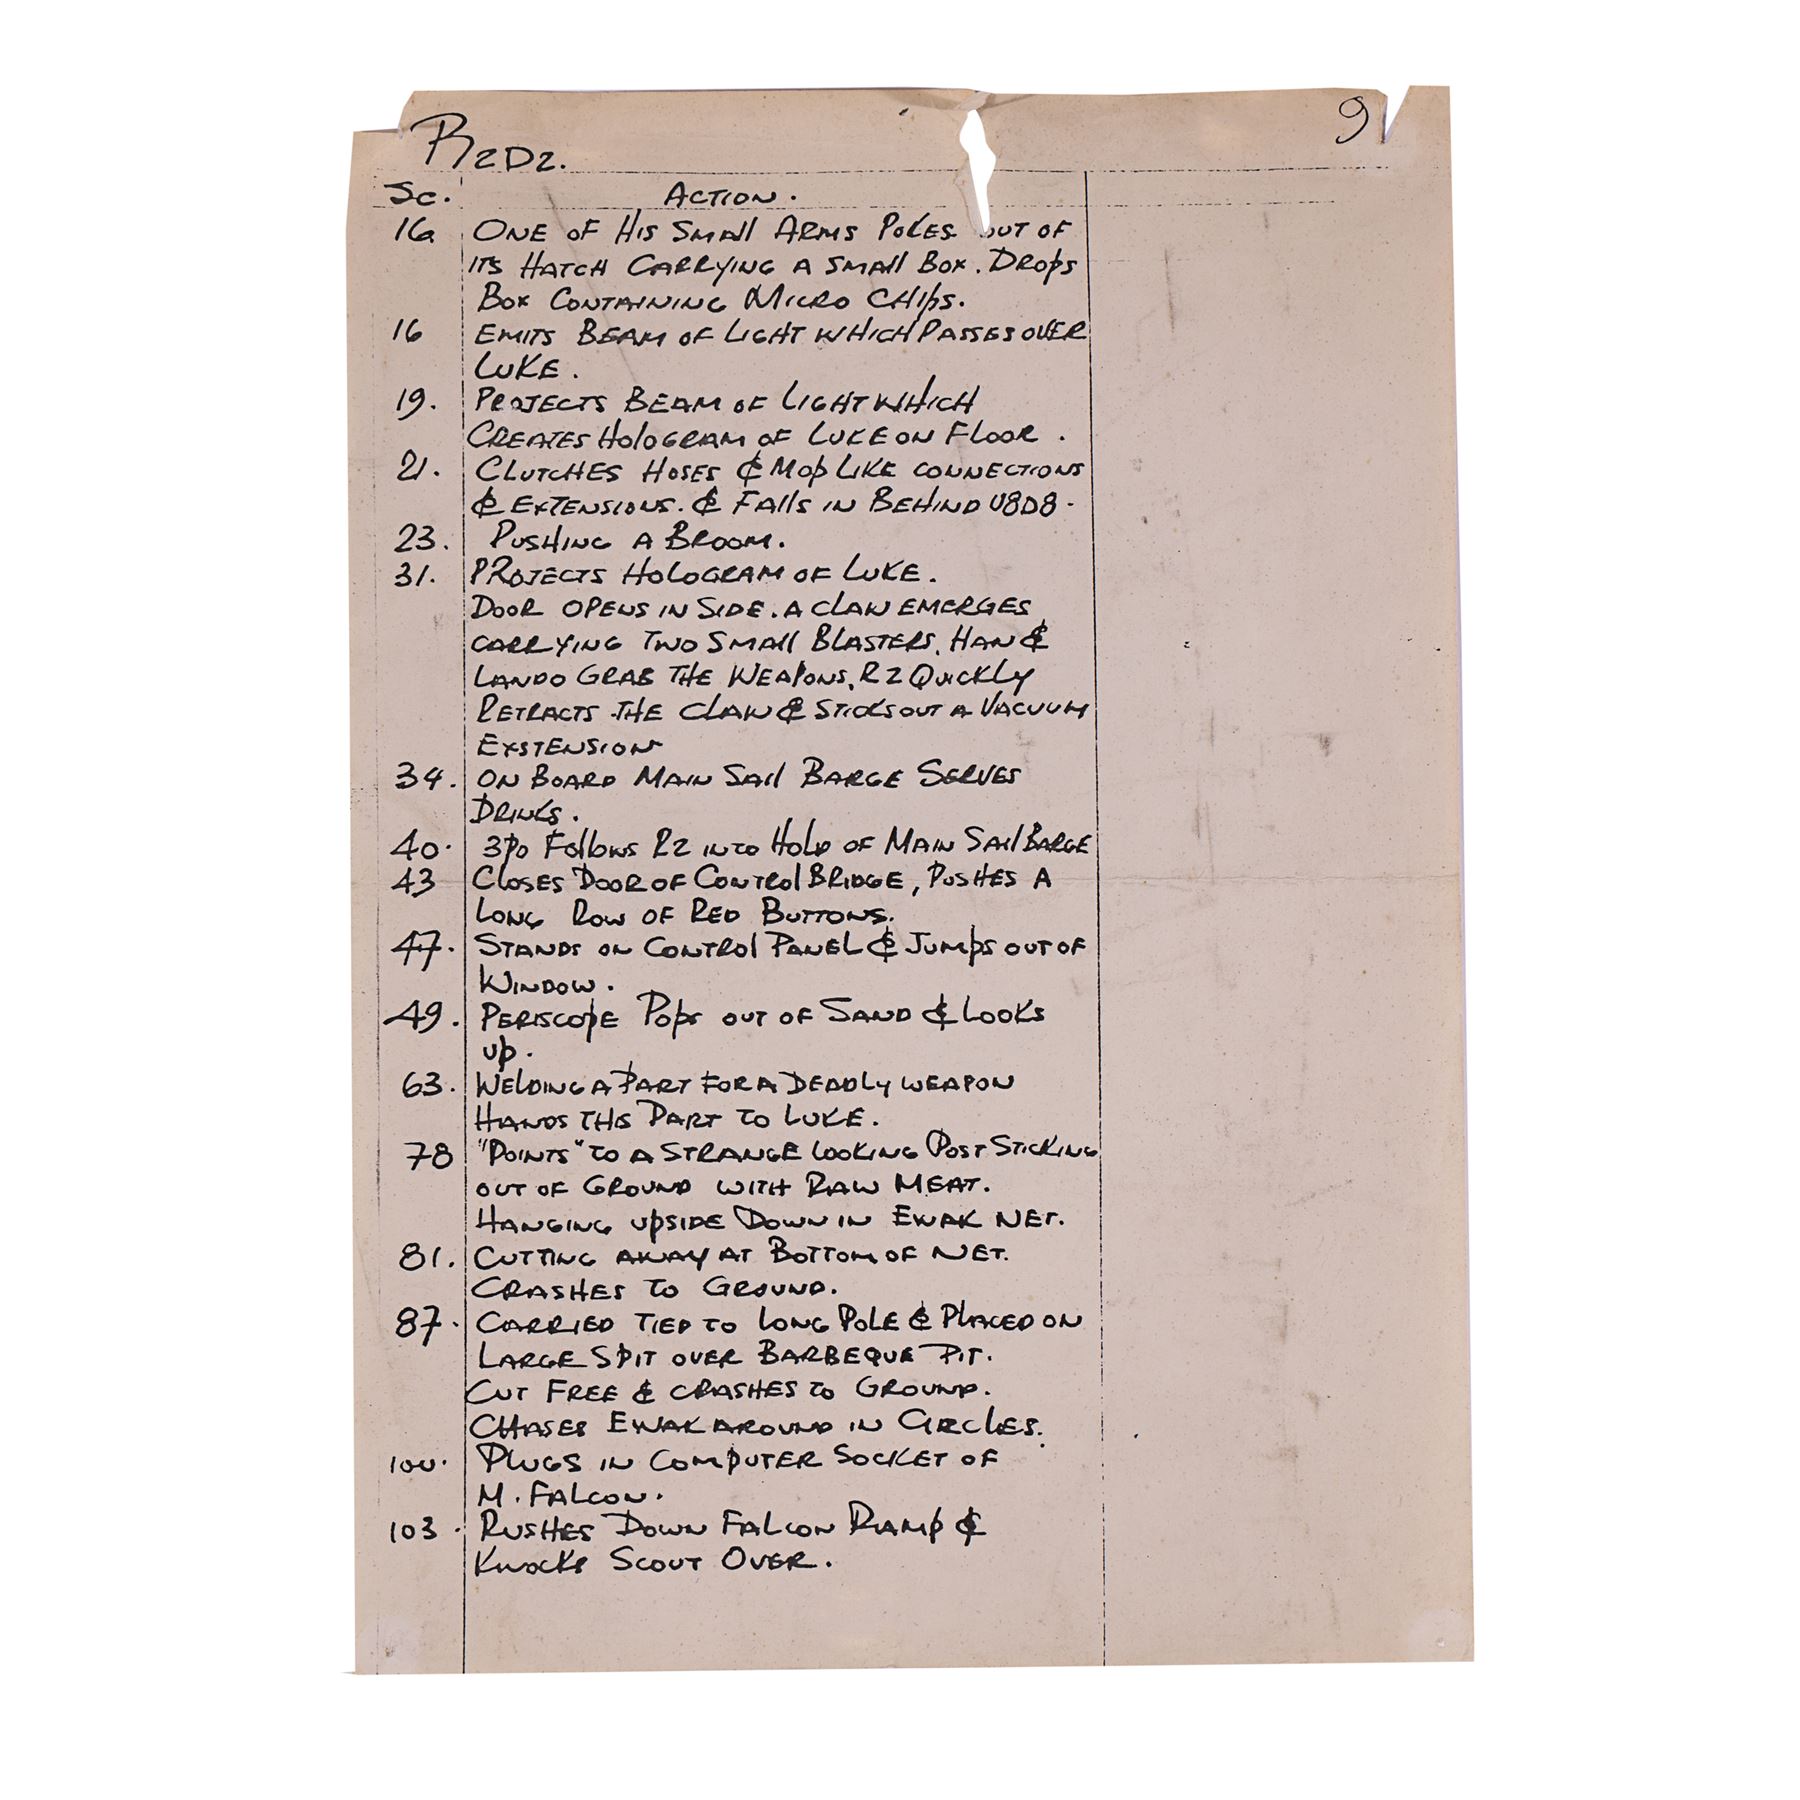 R2D2. 9
Sc. ACTION.
16a ONE OF HIS SMALL ARMS POKES OUT OF
ITS HATCH CARRYING A SMALL BOX. DROPS
BOX CONTAINING MICRO CHIPS.
16 EMITS BEAM OF LIGHT WHICH PASSES OVER
LUKE.
19. PROJECTS BEAM OF LIGHT WHICH
CREATES HOLOGRAM OF LUKE ON FLOOR.
21. CLUTCHES HOSES & MOP LIKE CONNECTIONS
& EXTENSIONS. & FALLS IN BEHIND V8D8.
23. PUSHING A BROOM.
31. PROJECTS HOLOGRAM OF LUKE.
DOOR OPENS IN SIDE. A CLAW EMERGES
CARRYING TWO SMALL BLASTERS. HAN &
LANDO GRAB THE WEAPONS. R2 QUICKLY
RETRACTS THE CLAW & STICKS OUT A VACUUM
EXSTENSION
34. ON BOARD MAIN SAIL BARGE SERVES
DRINKS.
40. 3PO FOLLOWS R2 INTO HOLD OF MAIN SAIL BARGE
43 CLOSES DOOR OF CONTROL BRIDGE, PUSHES A
LONG ROW OF RED BUTTONS.
47. STANDS ON CONTROL PANEL & JUMPS OUT OF
WINDOW.
49. PERISCOPE POPS OUT OF SAND & LOOKS
UP.
63. WELDING A PART FOR A DEADLY WEAPON
HANDS THIS PART TO LUKE.
78 "POINTS" TO A STRANGE LOOKING POST STICKING
OUT OF GROUND WITH RAW MEAT.
HANGING UPSIDE DOWN IN EWAK NET.
81. CUTTING AWAY AT BOTTOM OF NET.
CRASHES TO GROUND.
87. CARRIED TIED TO LONG POLE & PLACED ON
LARGE SPIT OVER BARBEQUE PIT.
CUT FREE & CRASHES TO GROUND.
CHASES EWAK AROUND IN CIRCLES.
100. PLUGS IN COMPUTER SOCKET OF
M. FALCON.
103. RUSHES DOWN FALCON RAMP &
KNOCKS SCOUT OVER.